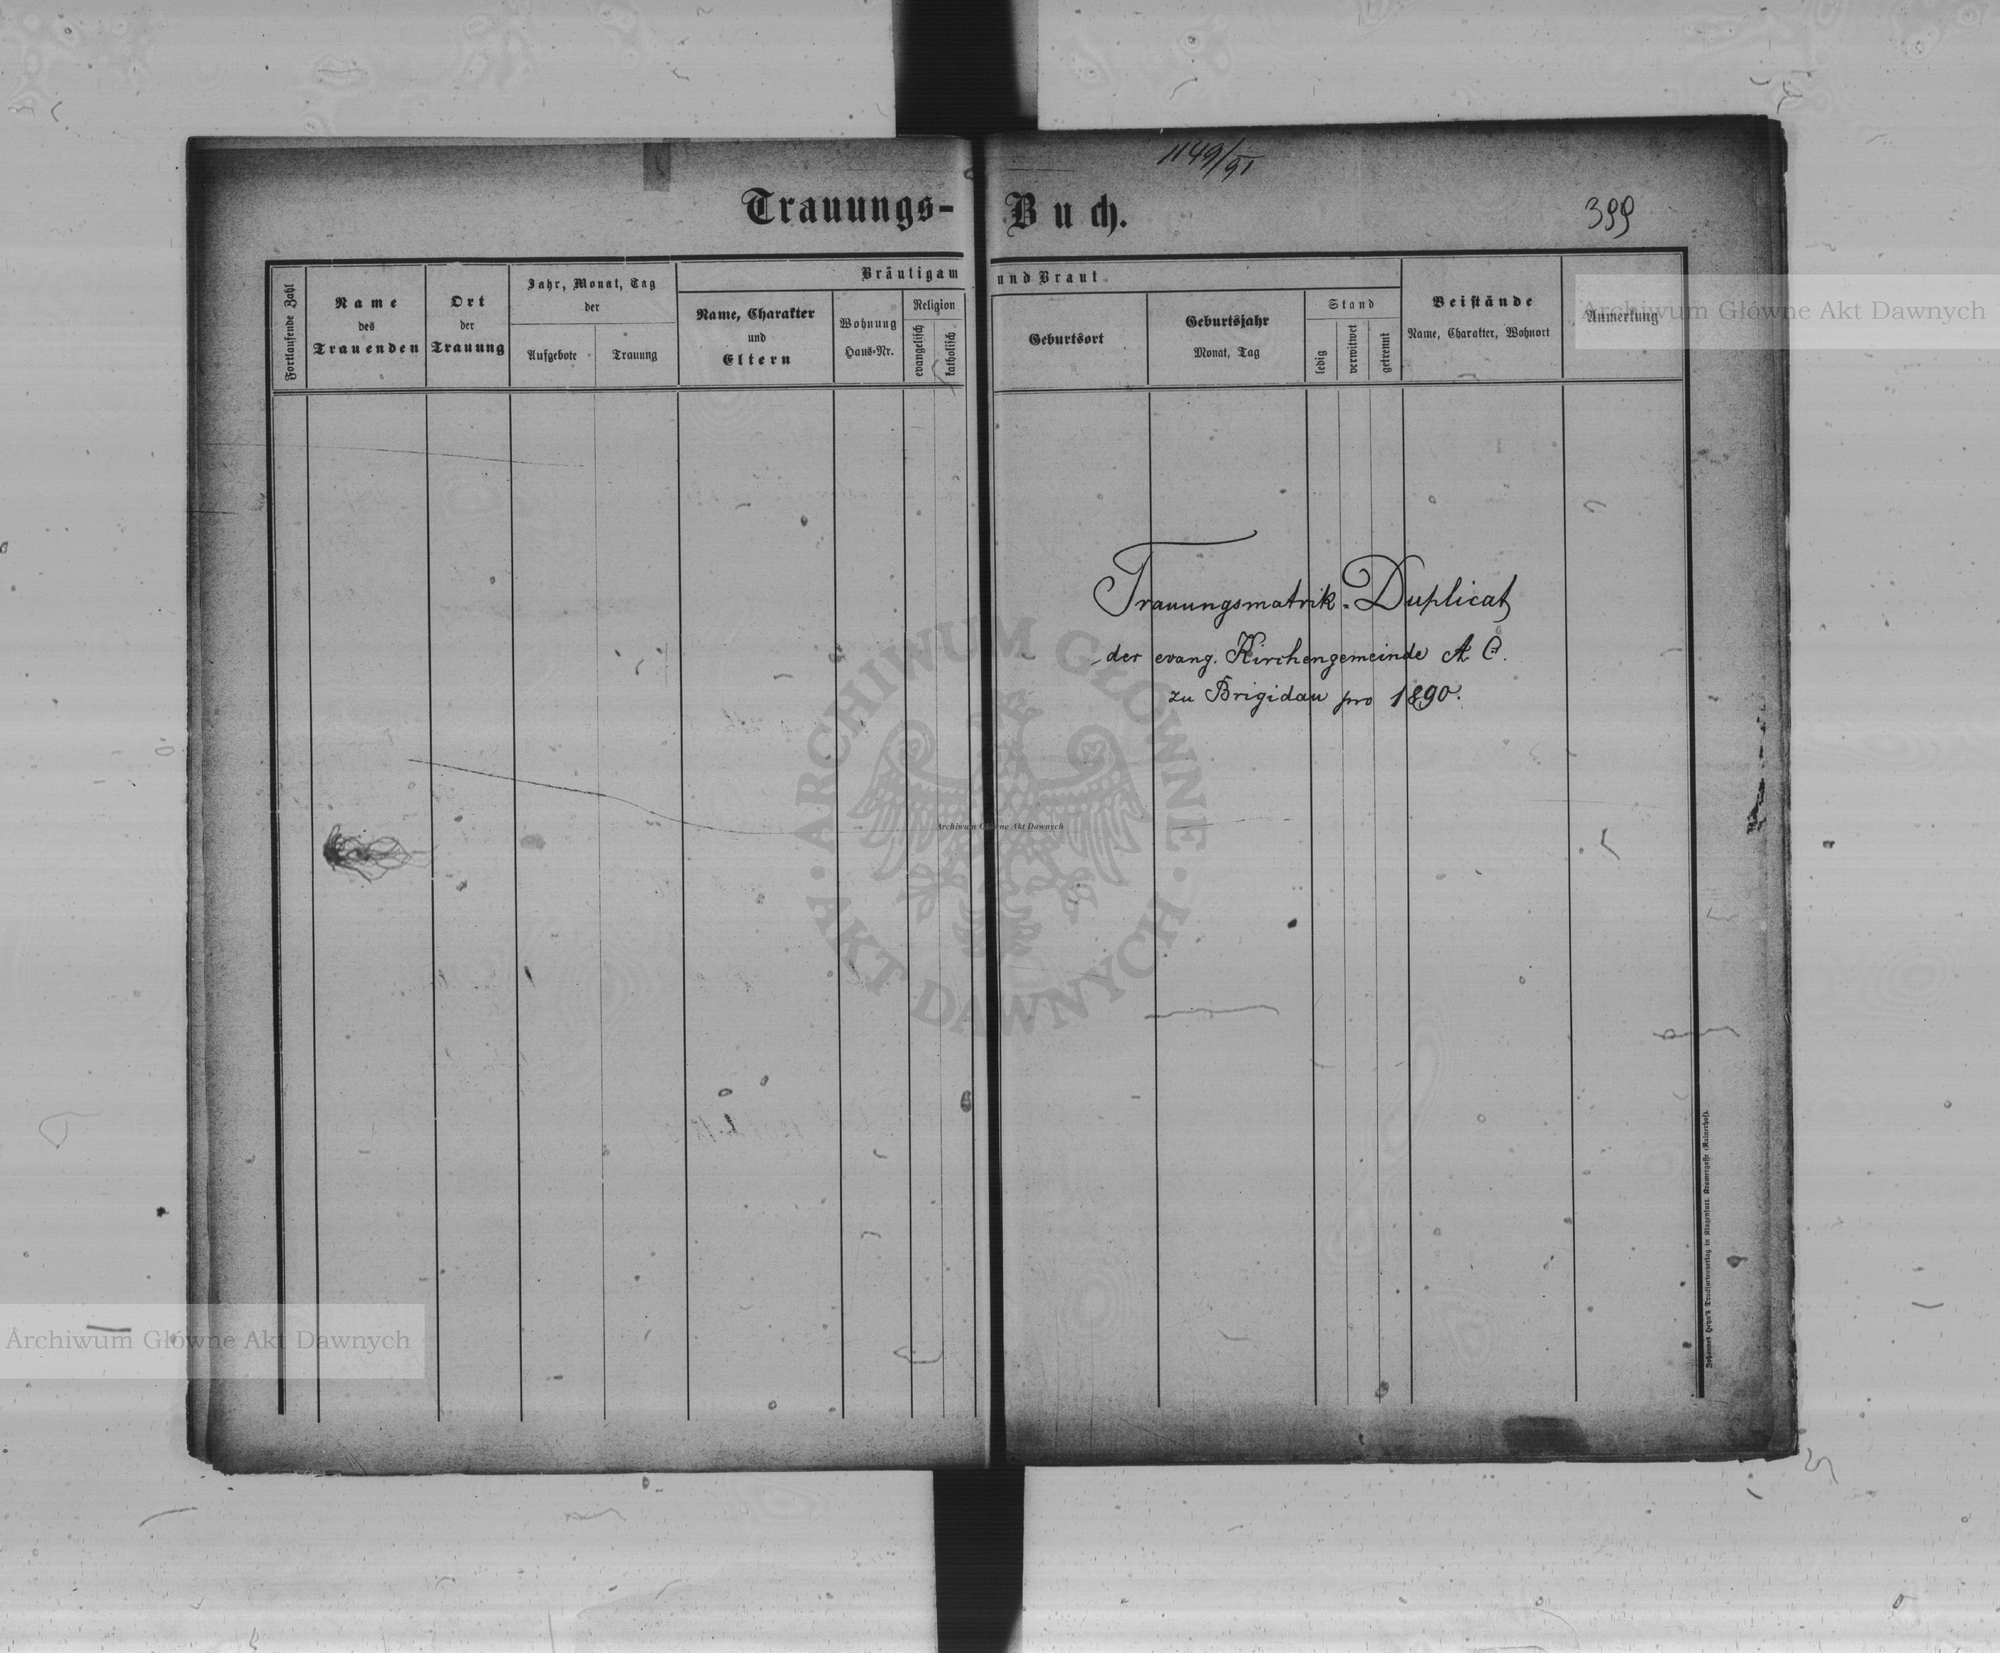 1149/91
Trauungs- Buch.
399
Bräutigam und Braut
Fortlaufende Zahl
Name
des
Trauenden
Ort
der
Trauung
Jahr, Monat, Tag
der
Aufgebote
Trauung
Name, Charakter
und
Eltern
Wohnung
Haus-Nr.
Religion
evangelisch
katholisch
Geburtsort
Geburtsjahr
Monat, Tag
Stand
ledig
verwitwet
getrennt
Beistände
Name, Charakter, Wohnort
Anmerkung
Archiwum Główne Akt Dawnych
Trauungsmatrik-Duplicat
der evang. Kirchengemeinde A. C.
zu Brigidau pro 1890.
ARCHIWUM GŁÓWNE
AKT DAWNYCH
Archiwum Główne Akt Dawnych
Archiwum Główne Akt Dawnych